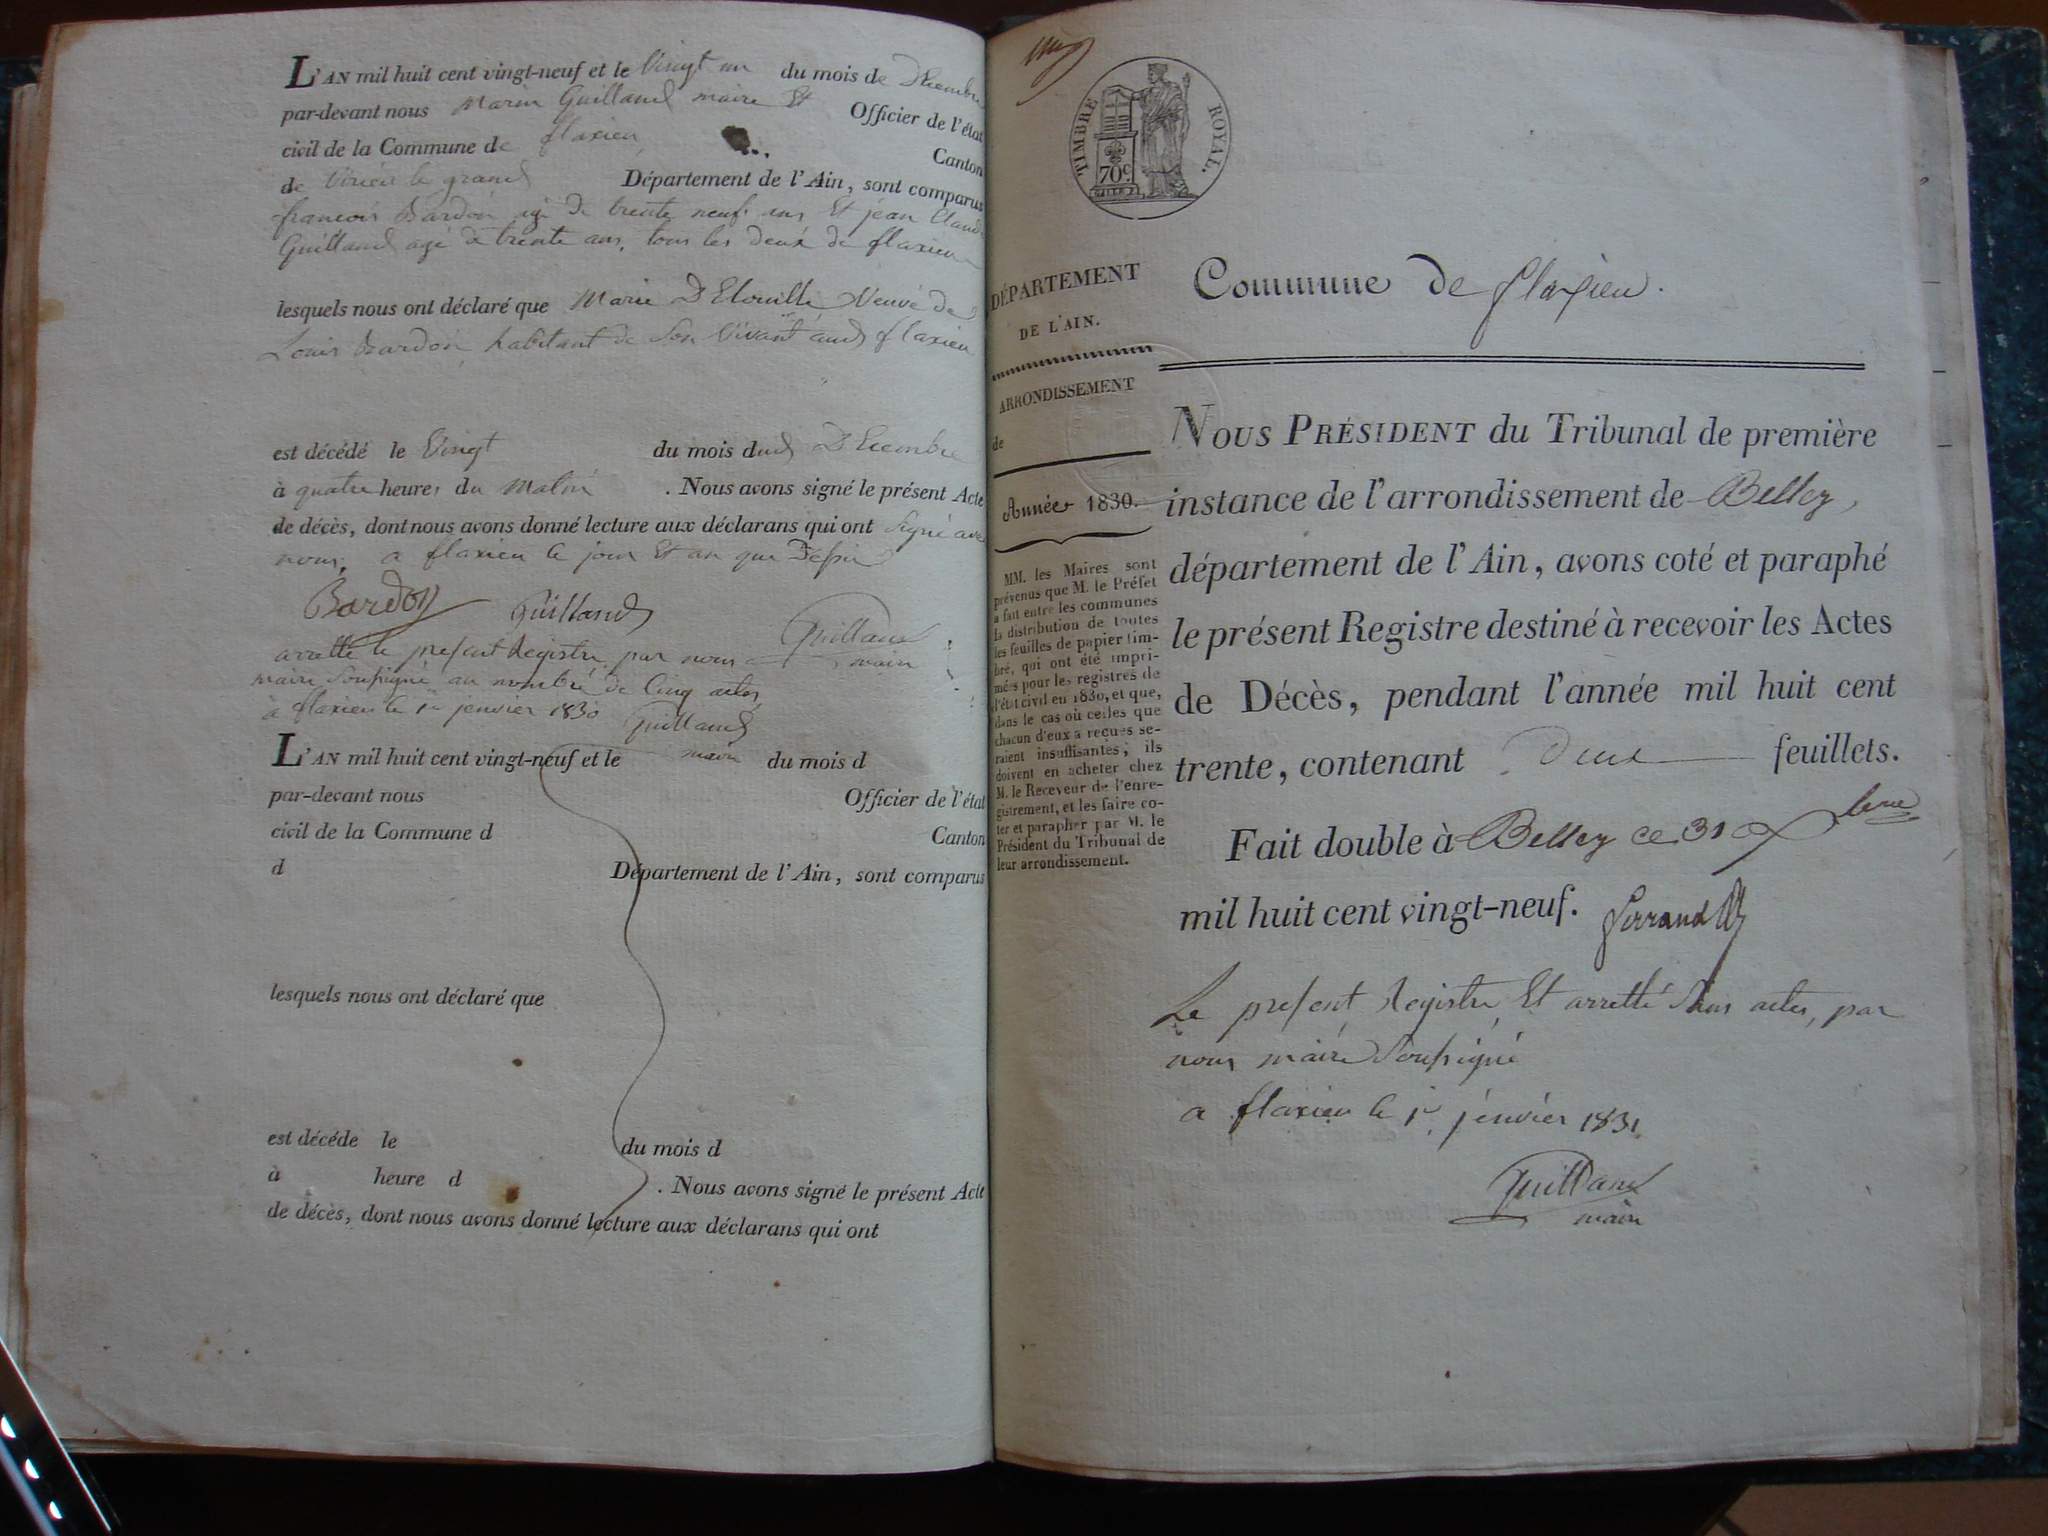 L'AN mil huit cent vingt-neuf et le Vingt un du mois de Décembre
par-devant nous Marin Guilland maire Et Officier de l'état
civil de la Commune de flaxieu Canton
de Virieu le grand Département de l'Ain, sont comparus
francois Bardon agé de trente neuf ans Et jean Claude
Guilland agé de trente ans, tous les deux de flaxieu
lesquels nous ont déclaré que Marie Veuve de
Louis Bardon habitant de Son Vivant aud flaxieu
est décédé le Vingt du mois dud Décembre
à quatre heures du Matin . Nous avons signé le présent Acte
de décès, dont nous avons donné lecture aux déclarans qui ont Signé avec
nous, a flaxieu le jour Et an que Dessus
Bardon Guilland
Guilland
maire
arretté le present Registre par nous
maire Soussigné au nombre de Cinq actes,
a flaxieu le 1er jenvier 1830
Guilland
maire
L'AN mil huit cent vingt-neuf et le du mois d
par-devant nous Officier de l'état
civil de la Commune d Canton
d Département de l'Ain, sont comparus
lesquels nous ont déclaré que
est décéde le du mois d
à heure d . Nous avons signé le présent Acte
de décès, dont nous avons donné lecture aux déclarans qui ont
TIMBRE ROYAL.
70c
DÉPARTEMENT
DE L'AIN.
ARRONDISSEMENT
de
Année 1830.
MM. les Maires sont
prévenus que M. le Préfet
a fait entre les communes
la distribution de toutes
les feuilles de papier tim-
bré, qui ont été impri-
mées pour les registres de
l'état civil en 1830, et que,
dans le cas où celles que
chacun d'eux a reçues se-
raient insuffisantes, ils
doivent en acheter chez
M. le Receveur de l'enre-
gistrement, et les faire co-
ter et parapher par M. le
Président du Tribunal de
leur arrondissement.
Commune de flaxieu.
NOUS PRÉSIDENT du Tribunal de première
instance de l'arrondissement de Belley,
département de l'Ain, avons coté et paraphé
le présent Registre destiné à recevoir les Actes
de Décès, pendant l'année mil huit cent
trente, contenant Deux feuillets.
Fait double à Belley ce 31 Xbre
mil huit cent vingt-neuf. Ferrand
Le present Registre Et arretté Sans actes, par
nous maire Soussigné
a flaxieu le 1er jenvier 1831
Guilland
maire